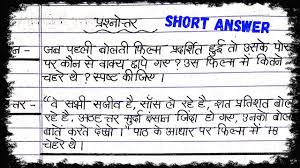 प्रश्नोत्तर SHORT ANSWER
जब पहली बोलती फिल्म प्रदर्शित हुई तो उसके पोस्
पर कौन से वाक्य छापे गए? उस फिल्म में कितने
चेहरे थे? स्पष्ट कीजिए।
तर - "वे सभी सजीव हैं, साँस ले रहे हैं, शत प्रतिशत बोल
रहे हैं, अठहत्तर मुर्दा इंसान जिंदा हो गए, उनको बोलते
बातें करते देखो।" पाठ के आधार पर फिल्म में
चेहरे थे।